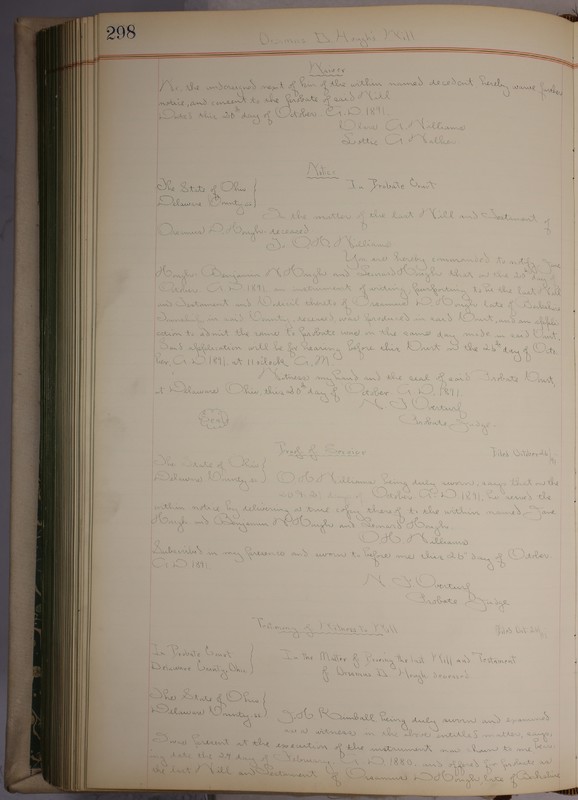 298
D. Hough Will
Waiver
We the undersigned next of kin of the within named decedent hereby waive further
notice, and consent to the probate of said Will
Dated this 20th day of October A.D. 1891.
A. Williams
Lottie A.
Notice
The State of Ohio
Delaware County, ss
In Probate Court
In the matter of the last Will and Testament of
D. Hough deceased
To O. H. Williams
You are hereby commanded to notify Jane
Hough, Benjamin Hough and Leonard Hough that on the 20th day of
October A.D. 1891 an instrument of writing purporting to be the last Will
and Testament and Codicil thereto of D. Hough late of Berkshire
Township in said County, deceased was produced in said Court, and an appli-
cation to admit the same to probate was on the same day made in said Court.
Said application will be for hearing before this Court on the 26th day of Octo-
ber, A.D. 1891. at 11 o'clock A.M.
Witness my hand and the seal of said Probate Court
at Delaware Ohio, this 20th day of October A.D. 1891.
Seal
Probate Judge.
Proof of Service
The State of Ohio
Delaware County, ss
O. H. Williams being duly sworn, says that on the
20th day of October A.D. 1891, he served the
within notice by delivering a true copy thereof to the within named, Jane
Hough and Benjamin Hough and Leonard Hough.
O. H. Williams
Subscribed in my presence and sworn to before me this 26th day of October
A.D. 1891
Probate Judge
Testimony of Witness to Will
In Probate Court
Delaware County, Ohio
In the Matter of Proving the last Will and Testament
of D. Hough deceased
The State of Ohio
Delaware County, ss
Kimball being duly sworn and examined
as a witness in the above entitled matter, says,
I was present at the execution of the instrument now shown to me bear-
ing date the 24 day of February A.D. 1880, and offered for probate as
the last Will and Testament of D. Hough late of Berkshire